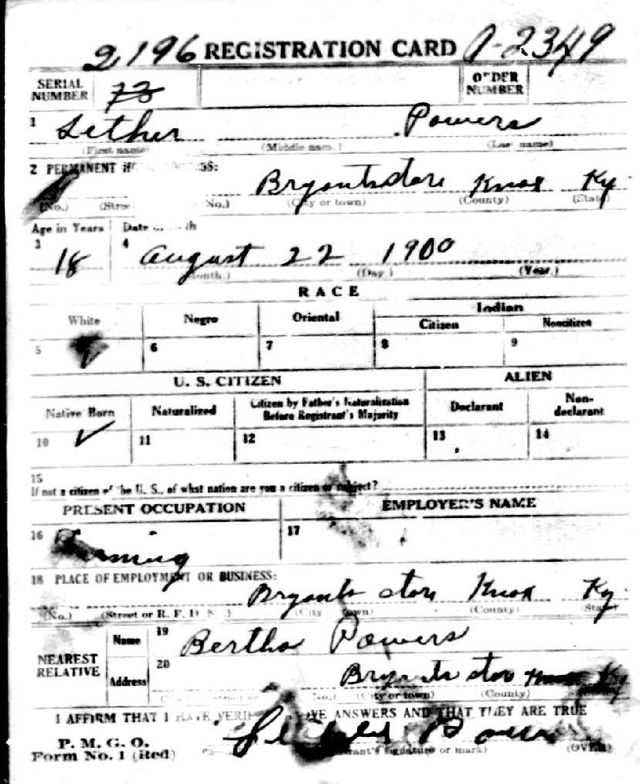 2196 REGISTRATION CARD A-2349
SERIAL NUMBER 73 ORDER NUMBER
1 Lether Powers
(First name) (Middle name) (Last name)
2 PERMANENT HOME ADDRESS:
Bryants store Knox Ky
(No.) (Street No.) (City or town) (County) (State)
Age in Years Date
3 18 4 August 22 1900
(Month.) (Day.) (Year.)
RACE
White Negro Oriental Indian
Citizen Noncitizen
5 6 7 8 9
U. S. CITIZEN ALIEN
Native Born Naturalized Citizen by Father's Naturalization Before Registrant's Majority Declarant Non-declarant
10 ✓ 11 12 13 14
15
If not a citizen of the U. S., of what nation are you a citizen or subject?
PRESENT OCCUPATION EMPLOYER'S NAME
16 Farming 17
18 PLACE OF EMPLOYMENT OR BUSINESS:
Bryants store Knox Ky
(No.) (Street or R. F. D. (City town) (County) (State)
NEAREST RELATIVE Name 19 Bertha Powers
Address 20 Bryants store Knox Ky
No.) (City or town) (County)
I AFFIRM THAT I HAVE VERIFIED ABOVE ANSWERS AND THAT THEY ARE TRUE
P. M. G. O.
Form No. 1 (Red) signature or mark) (OVER)